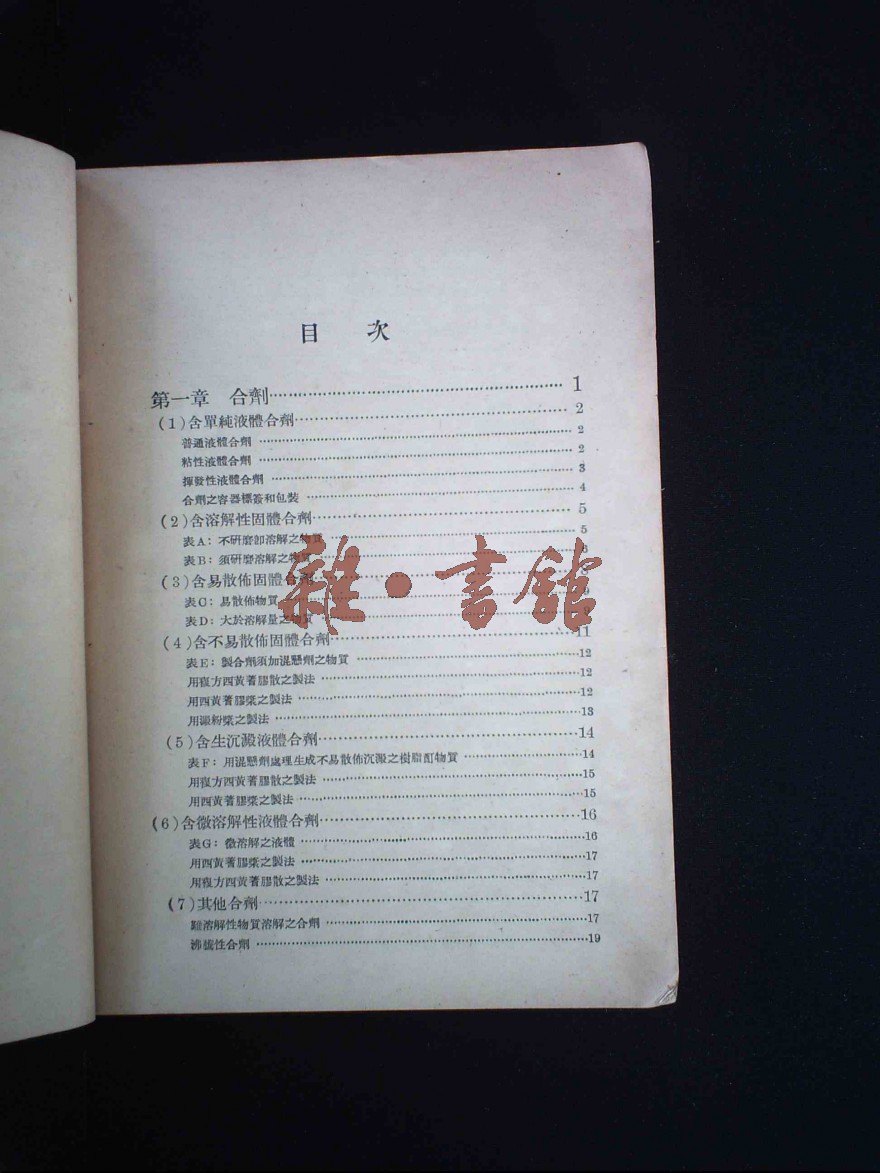 目 次
第一章 合劑 1
(1)含單純液體合劑 2
普通液體合劑 2
粘性液體合劑 2
揮發性液體合劑 3
合劑之容器標簽和包裝 4
(2)含溶解性固體合劑 5
表A: 不研磨卽溶解之物質 5
表B: 須研磨溶解之物質 6
(3)含易散佈固體合劑
表C: 易散佈物質 9
表D: 大於溶解量之物質 9
雜·書館
(4)含不易散佈固體合劑 11
表E: 製合劑須加混懸劑之物質 12
用複方西黃蓍膠散之製法 12
用西黃蓍膠漿之製法 12
用澱粉漿之製法 13
(5)含生沉澱液體合劑 14
表F: 用混懸劑處理生成不易散佈沉澱之樹脂酊物質 14
用複方西黃蓍膠散之製法 15
用西黃蓍膠漿之製法 15
(6)含微溶解性液體合劑 16
表G: 微溶解之液體 16
用西黃蓍膠漿之製法 17
用複方西黃蓍膠散之製法 17
(7)其他合劑 17
難溶解性物質溶解之合劑 17
沸騰性合劑 19